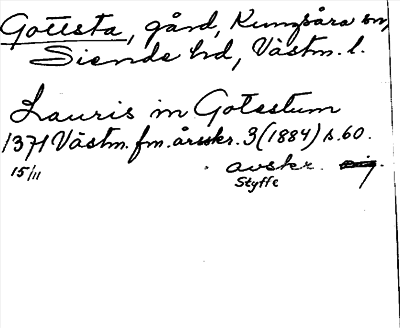 Gottsta, gård, Kungsåra sn,
Siende hd, Västm. l.
Lauris in Gotsstum
1371 Västm. fm. årsskr. 3 (1884) s. 60.
15/11 avskr.
Styffe